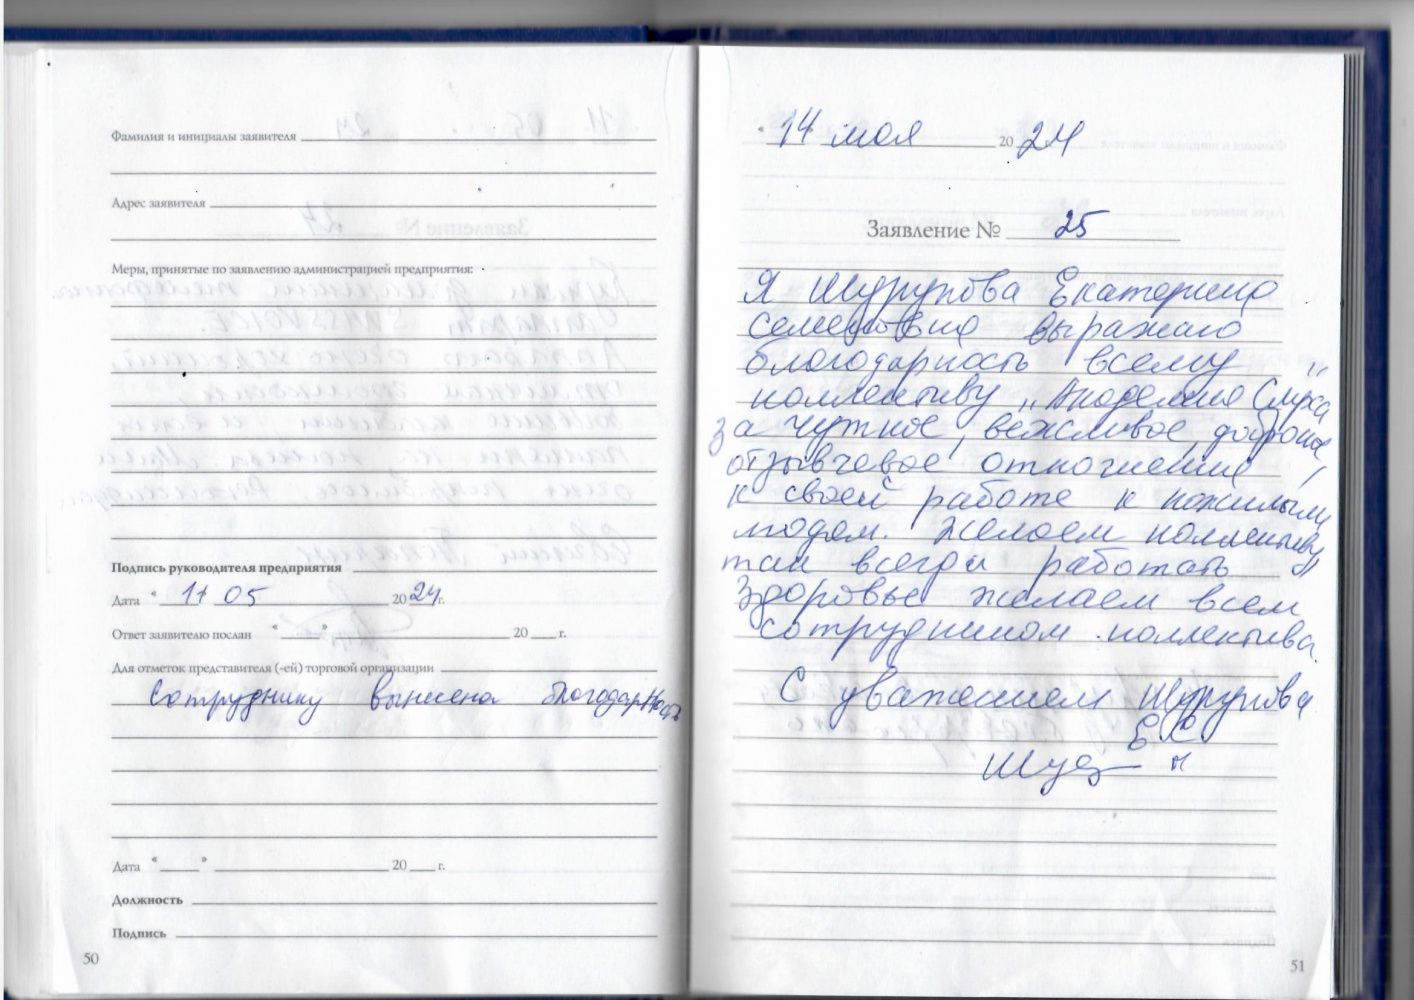 Фамилия и инициалы заявителя
Адрес заявителя
Меры, принятые по заявлению администрацией предприятия:
Подпись руководителя предприятия
Дата " 11 05 2024 г.
Ответ заявителю послан " " 20 г.
Для отметок представителя (-ей) торговой организации
Сотруднику вынесена благодарность
Дата " " 20 г.
Должность
Подпись
50
" 14 мая 2024
Заявление № 25
Я Шурупова Екатерина
Семеновна выражаю
благодарность всему
коллективу „Академия Слуха"
за чуткое, вежливое, доброе,
отзывчевое отношение
к своей работе к пожилым
людям. Желаем коллективу
так всегда работать
Здоровье желаем всем
сотрудником коллектива.
С уважением Шурупова
Е С
51